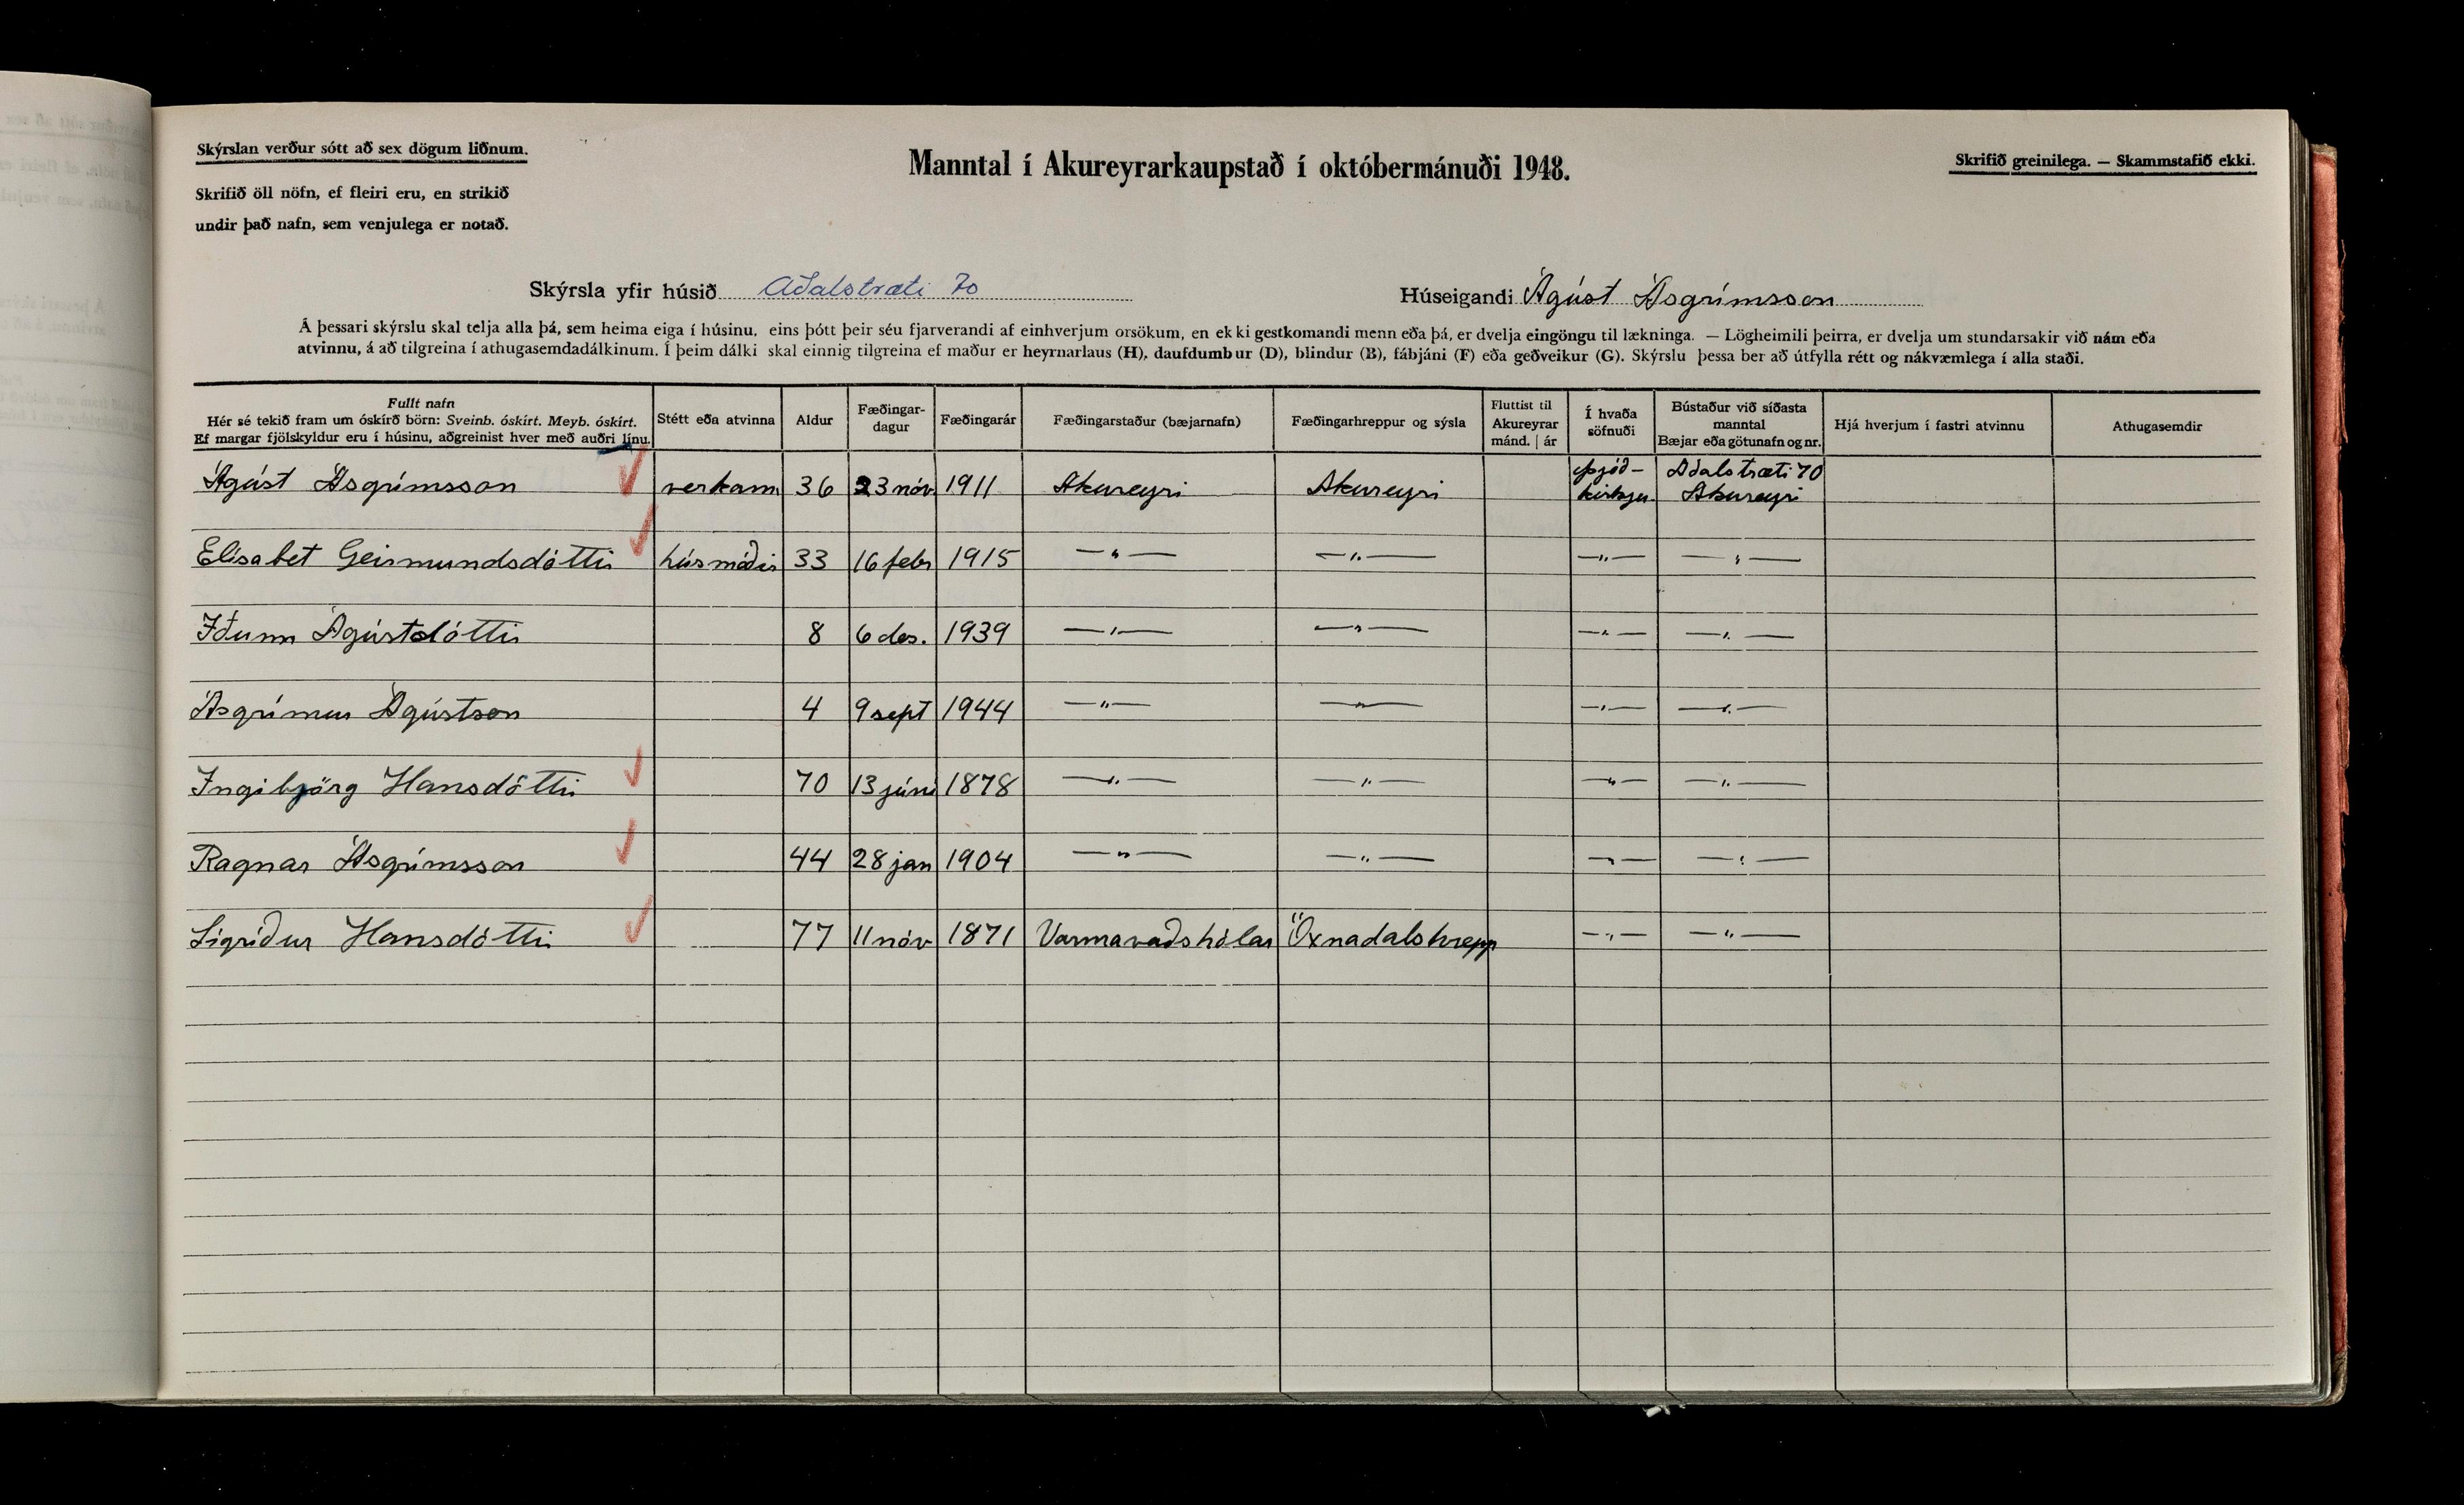 Skýrslan verður sótt að sex dögum liðnum.
Skrifið öll nöfn, ef fleiri eru, en strikið
undir það nafn, sem venjulega er notað.
Manntal í Akureyrarkaupstað í októbermánuði 1948.
Skrifið greinilega. — Skammstafið ekki.
Skýrsla yfir húsið Aðalstræti 70
Húseigandi Ágúst Ásgrímsson
Á þessari skýrslu skal telja alla þá, sem heima eiga í húsinu, eins þótt þeir séu fjarverandi af einhverjum orsökum, en ekki gestkomandi menn eða þá, er dvelja eingöngu til lækninga. — Lögheimili þeirra, er dvelja um stundarsakir við nám eða
atvinnu, á að tilgreina í athugasemdadálkinum. Í þeim dálki skal einnig tilgreina ef maður er heyrnarlaus (H), daufdumbur (D), blindur (B), fábjáni (F) eða geðveikur (G). Skýrslu þessa ber að útfylla rétt og nákvæmlega í alla staði.
Fullt nafn
Hér sé tekið fram um óskírð börn: Sveinb. óskírt. Meyb. óskírt.
Ef margar fjölskyldur eru í húsinu, aðgreinist hver með auðri línu.
Stétt eða atvinna
Aldur
Fæðingar-
dagur
Fæðingarár
Fæðingarstaður (bæjarnafn)
Fæðingarhreppur og sýsla
Fluttist til
Akureyrar
mánd. | ár
Í hvaða
söfnuði
Bústaður við síðasta
manntal
Bæjar eða götunafn og nr.
Hjá hverjum í fastri atvinnu
Athugasemdir
Ágúst Ásgrímsson verkam 36 23 nóv 1911 Akureyri Akureyri þjóð- Aðalstræti 70
kirkju Akureyri
Elísabet Geirmundsdóttir húsmóðir 33 16 febr 1915 —"— —"— —"— —"—
Iðunn Ágústdóttir 8 6 des. 1939 —"— —"— —"— —"—
Ásgrímur Ágústson 4 9 sept 1944 —"— —"— —"— —"—
Ingibjörg Hansdóttir 70 13 júní 1878 —"— —"— —"— —"—
Ragnar Ásgrímsson 44 28 jan 1904 —"— —"— —"— —"—
Sigríður Hansdóttir 77 11 nóv 1871 Varmavaðshólar Öxnadalshrepp —"— —"—